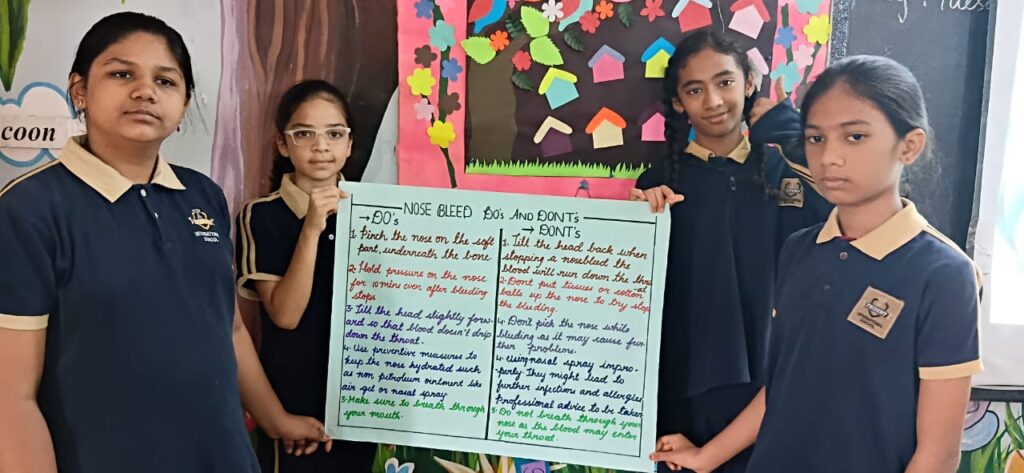 coon
NOSE BLEED DO's AND DONT's
→DO's
1. Pinch the nose on the soft
part, underneath the bone
2. Hold pressure on the nose
for 10 mins even after bleeding
stops
3. Tilt the head slightly forw-
ard so that blood doesn't drip
down the throat.
4. Use preventive measures to
keep the nose hydrated such
as non petroleum ointment like
air gel or nasal spray
5. Make sure to breath through
your mouth.
→ DONT's
1. Tilt the head back when
stopping a nosebleed the
blood will run down the thro
-at
2. Dont put tissues or cotton
balls up the nose to try stop
the bleeding.
4. Don't pick the nose while
bleeding as it may cause fur-
ther problems.
4. Using nasal spray impro-
perly They might lead to
further infections and allergies
Professional advice to be taken
5. Do not breath through your
nose as the blood may enter
your throat.
INTERNATIONAL
SCHOOL